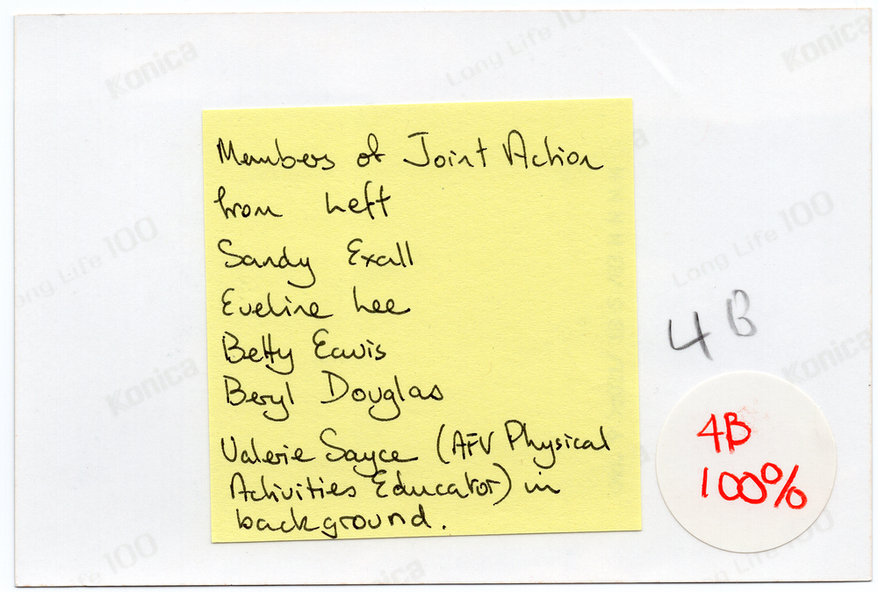 Konica
Long Life 100
Konica
Members of Joint Action
from Left
Sandy Exall
Eveline Lee
Betty Eavis
Beryl Douglas
Valerie Sayce (AFV Physical
Activities Educator) in
background.
Long Life 100
Long Life 100
4B
Konica
Konica
4B
100%
Life 100
Konica
Long Life 100